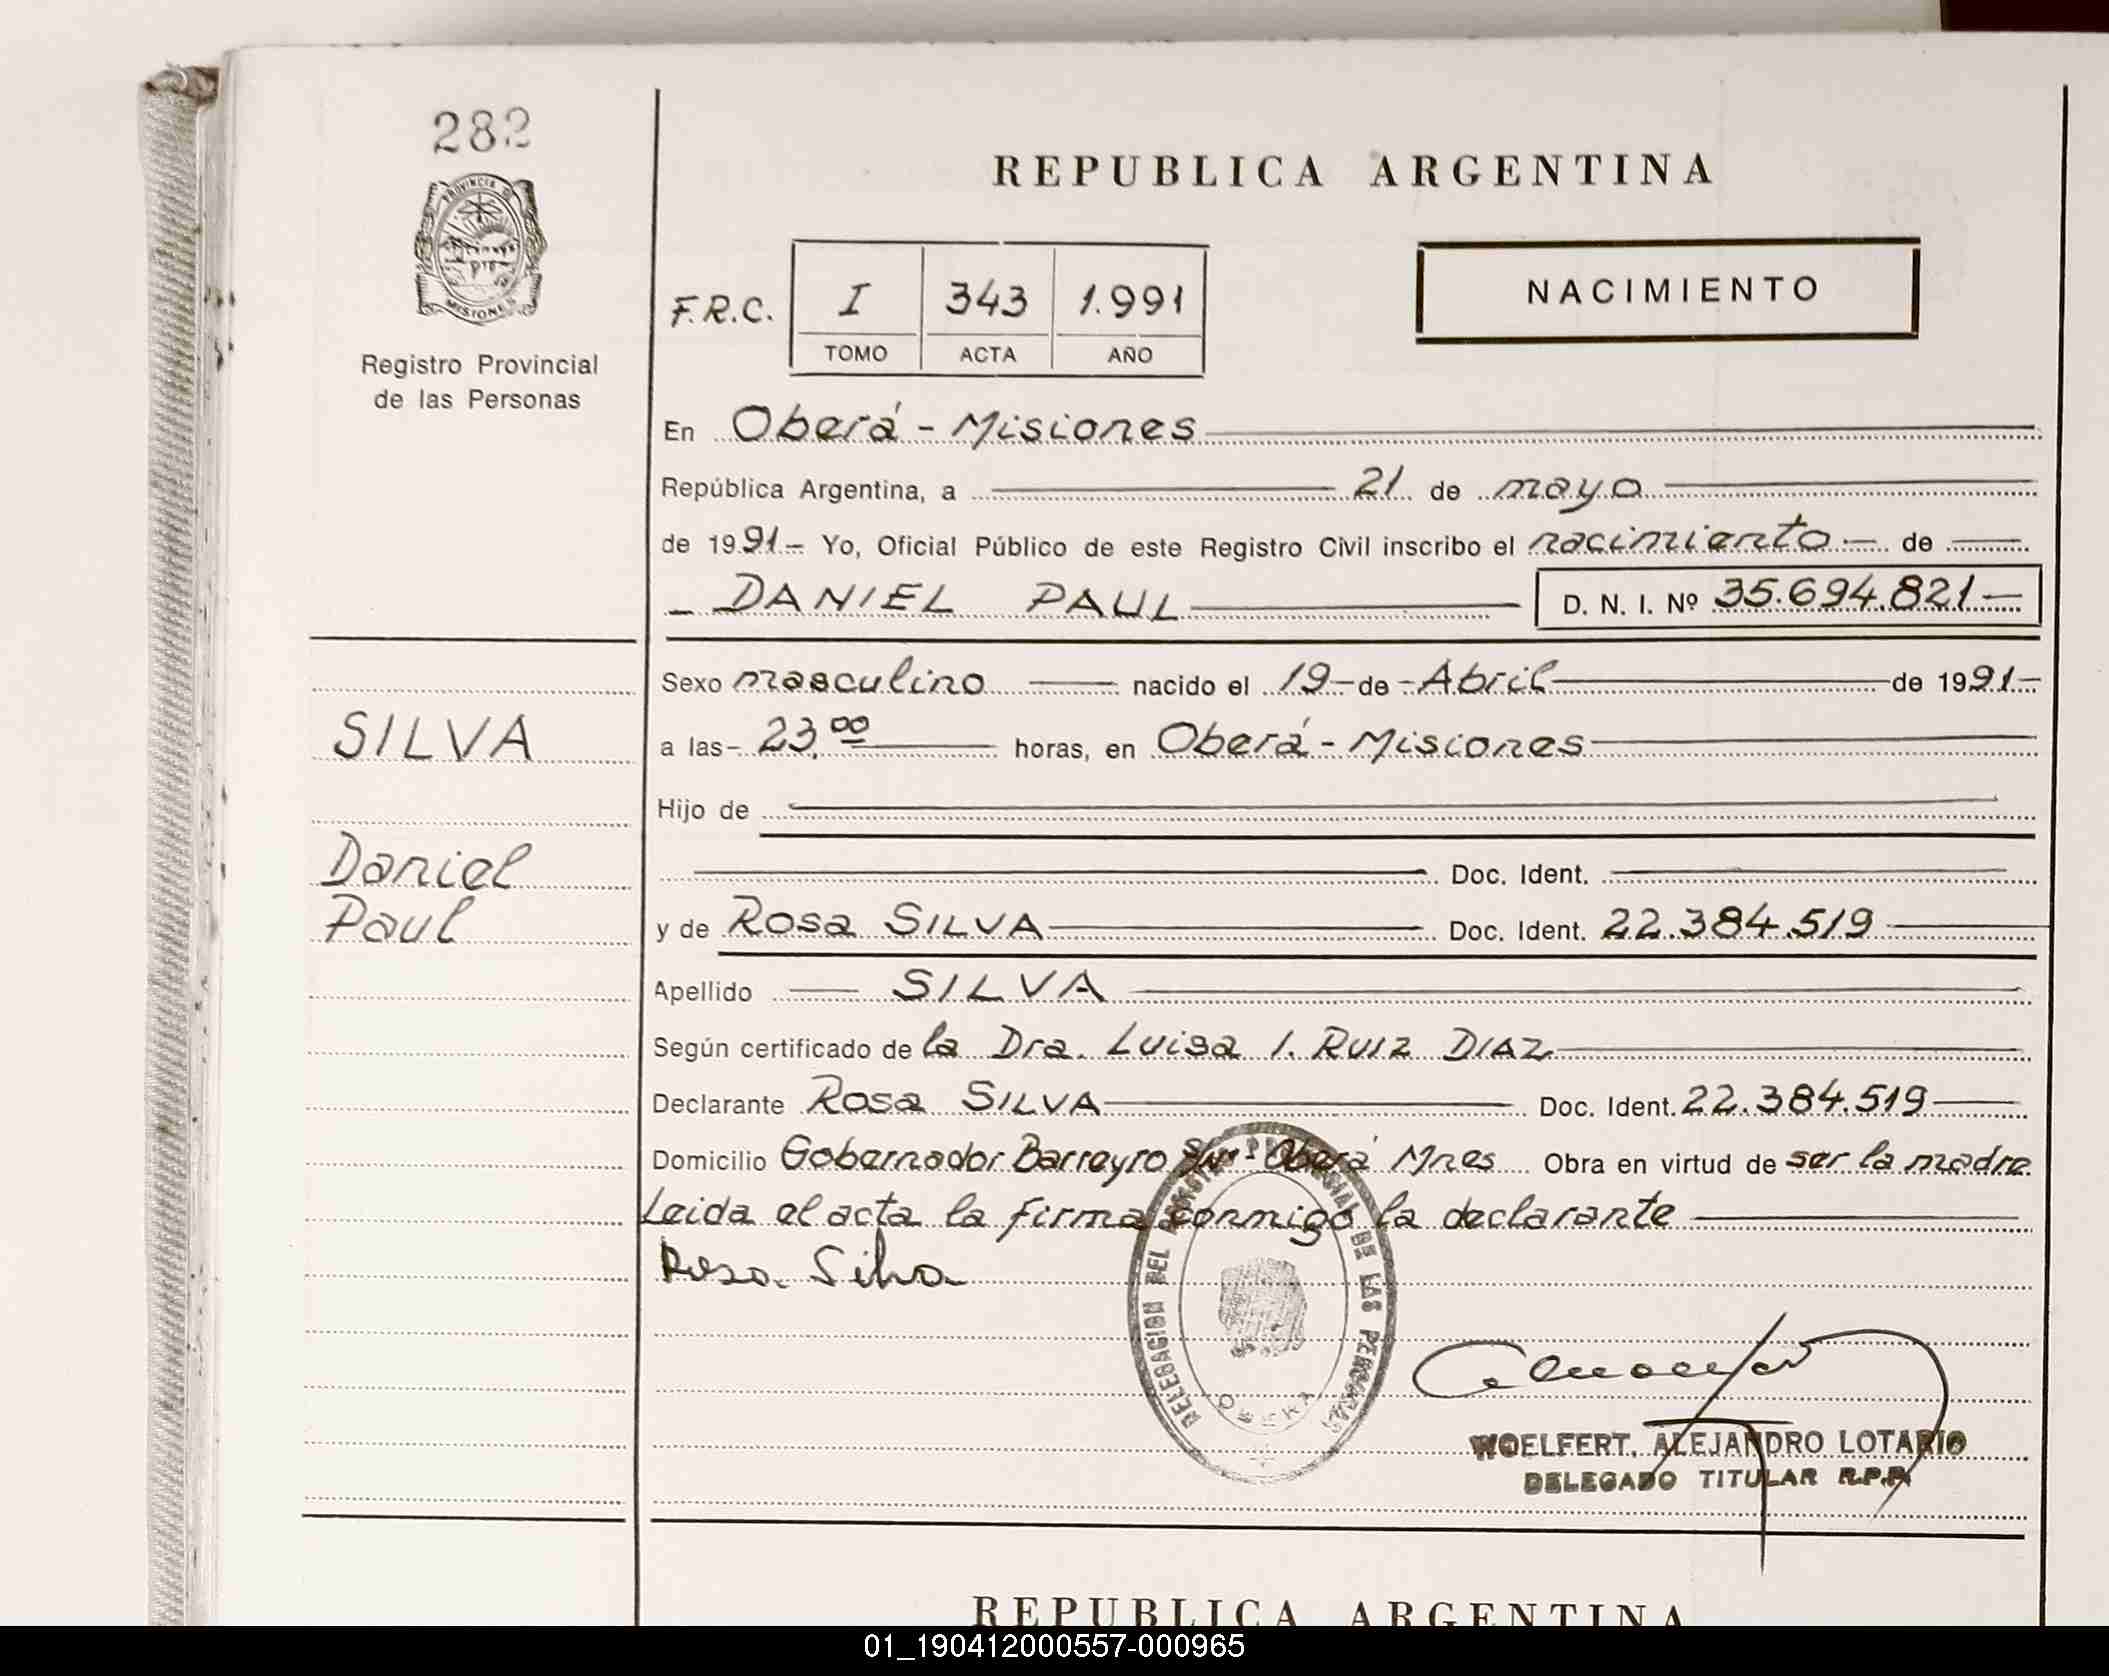 282
PROVINCIA DE
MISIONES
Registro Provincial
de las Personas
SILVA
Daniel
Paul
REPUBLICA ARGENTINA
F.R.C. I 343 1.991
TOMO ACTA AÑO
NACIMIENTO
En Oberá - Misiones
República Argentina, a 21 de mayo
de 1991.- Yo, Oficial Público de este Registro Civil inscribo el nacimiento - de
- DANIEL PAUL D. N. I. Nº 35.694.821 -
Sexo masculino nacido el 19 - de - Abril de 1991.-
a las - 23,00 horas, en Oberá - Misiones
Hijo de
Doc. Ident.
y de Rosa SILVA Doc. Ident. 22.384.519
Apellido SILVA
Según certificado de la Dra. Luisa I. RUIZ DIAZ
Declarante Rosa SILVA Doc. Ident. 22.384.519
Domicilio Gobernador Barreyro s/nº Oberá Mnes Obra en virtud de ser la madre.
Leida el acta la firma conmigo la declarante
Rosa Silva
DELEGACION DEL REGISTRO PROVINCIAL DE LAS PERSONAS
OBERA
WOELFERT, ALEJANDRO LOTARIO
DELEGADO TITULAR R.P.P.
REPUBLICA ARGENTINA
01_190412000557-000965